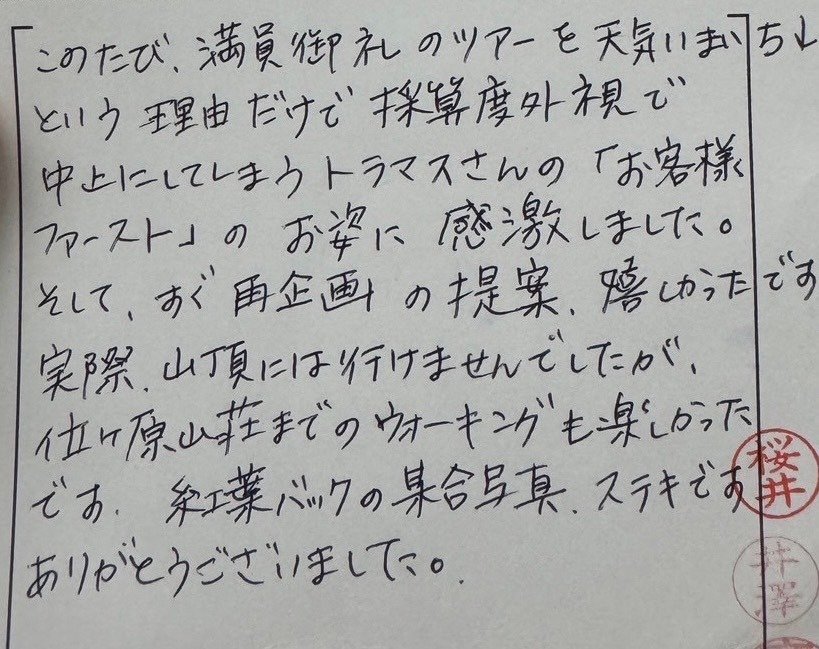 このたび、満員御礼のツアーを天気いまいち↓
という理由だけで採算度外視で
中止にしてしまうトラマスさんの「お客様
ファースト」のお姿に感激しました。
そして、すぐ再企画の提案、嬉しかったです
実際、山頂には行けませんでしたが、
位ヶ原山荘までのウォーキングも楽しかった
です。紅葉バックの集合写真、ステキです
ありがとうございました。
桜井
井澤